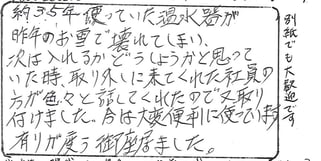 約35年使っていた温水器が
昨年のお雪で壊れてしまい、
次は入れるかどうしようかと思って
いた時、取り外しに来てくれた社員の
方が色々と話してくれたので又取り
付けました。今は大変便利に使っています
有りが度う御座居ました。
別紙でも大歓迎です